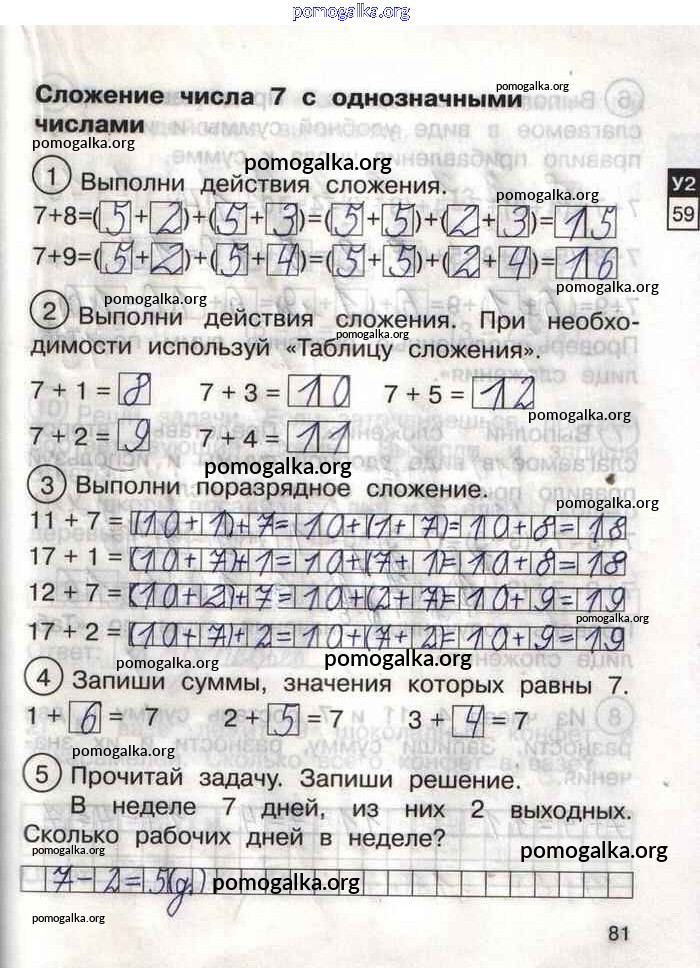 pomogalka.org
pomogalka.org
Сложение числа 7 с однозначными
числами
pomogalka.org
pomogalka.org
1 Выполни действия сложения.
pomogalka.org
У2
59
7+8=(5+2)+(5+3)=(5+5)+(2+3)=15
7+9=(5+2)+(5+4)=(5+5)+(2+4)=16
pomogalka.org
pomogalka.org
2 Выполни действия сложения. При необхо-
димости используй «Таблицу сложения».
7 + 1 = 8 7 + 3 = 10 7 + 5 = 12
pomogalka.org
7 + 2 = 9 7 + 4 = 11
pomogalka.org
3 Выполни поразрядное сложение.
pomogalka.org
11 + 7 = (10+1)+7=10+(1+7)=10+8=18
17 + 1 = (10+7)+1=10+(7+1)=10+8=18
12 + 7 = (10+2)+7=10+(2+7)=10+9=19
pomogalka.org
17 + 2 = (10+7)+2=10+(7+2)=10+9=19
pomogalka.org
pomogalka.org
4 Запиши суммы, значения которых равны 7.
1 + 6 = 7 2 + 5 = 7 3 + 4 = 7
pomogalka.org
pomogalka.org
5 Прочитай задачу. Запиши решение.
В неделе 7 дней, из них 2 выходных.
Сколько рабочих дней в неделе?
pomogalka.org
pomogalka.org
7-2=5(д.)
pomogalka.org
pomogalka.org
81